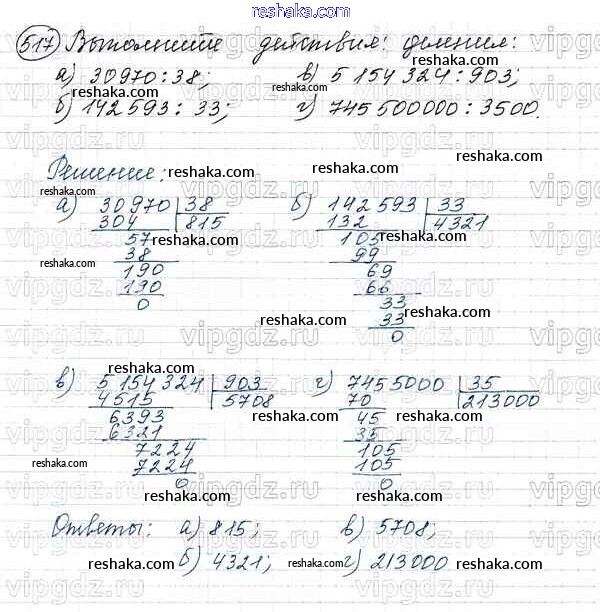 reshaka.com
517 Выполните действия: деления:
reshaka.com
а) 30970 : 38; в) 5 154 324 : 903;
б) 142 593 : 33; г) 745 500 000 : 3500.
reshaka.com reshaka.com
vipgdz.ru vipgdz.ru vipgdz.ru
Решение: reshaka.com reshaka.com
reshaka.com
а) 30970 | 38 б) 142593 | 33
304 815 reshaka.com 132 4321 reshaka.com
57 105
38 reshaka.com 99 reshaka.com
190 69
190 66
0 33
33
0
reshaka.com
vipgdz.ru vipgdz.ru vipgdz.ru
reshaka.com reshaka.com
в) 5 154 324 | 903 г) 745 5000 | 35
4515 5708 70 213000
6393 reshaka.com 45 reshaka.com
6321 35
7224 105
7224 105
0 0
reshaka.com reshaka.com
reshaka.com reshaka.com
vipgdz.ru vipgdz.ru vipgdz.ru
Ответы: а) 815; в) 5708;
reshaka.com reshaka.com
б) 4321; г) 213000
reshaka.com reshaka.com
vipgdz.ru vipgdz.ru vipgdz.ru